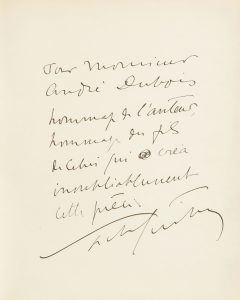 Pour Monsieur
André Dubois
hommage de l'auteur,
hommage du fils
de celui qui créa
inoubliablement
cette pièce.